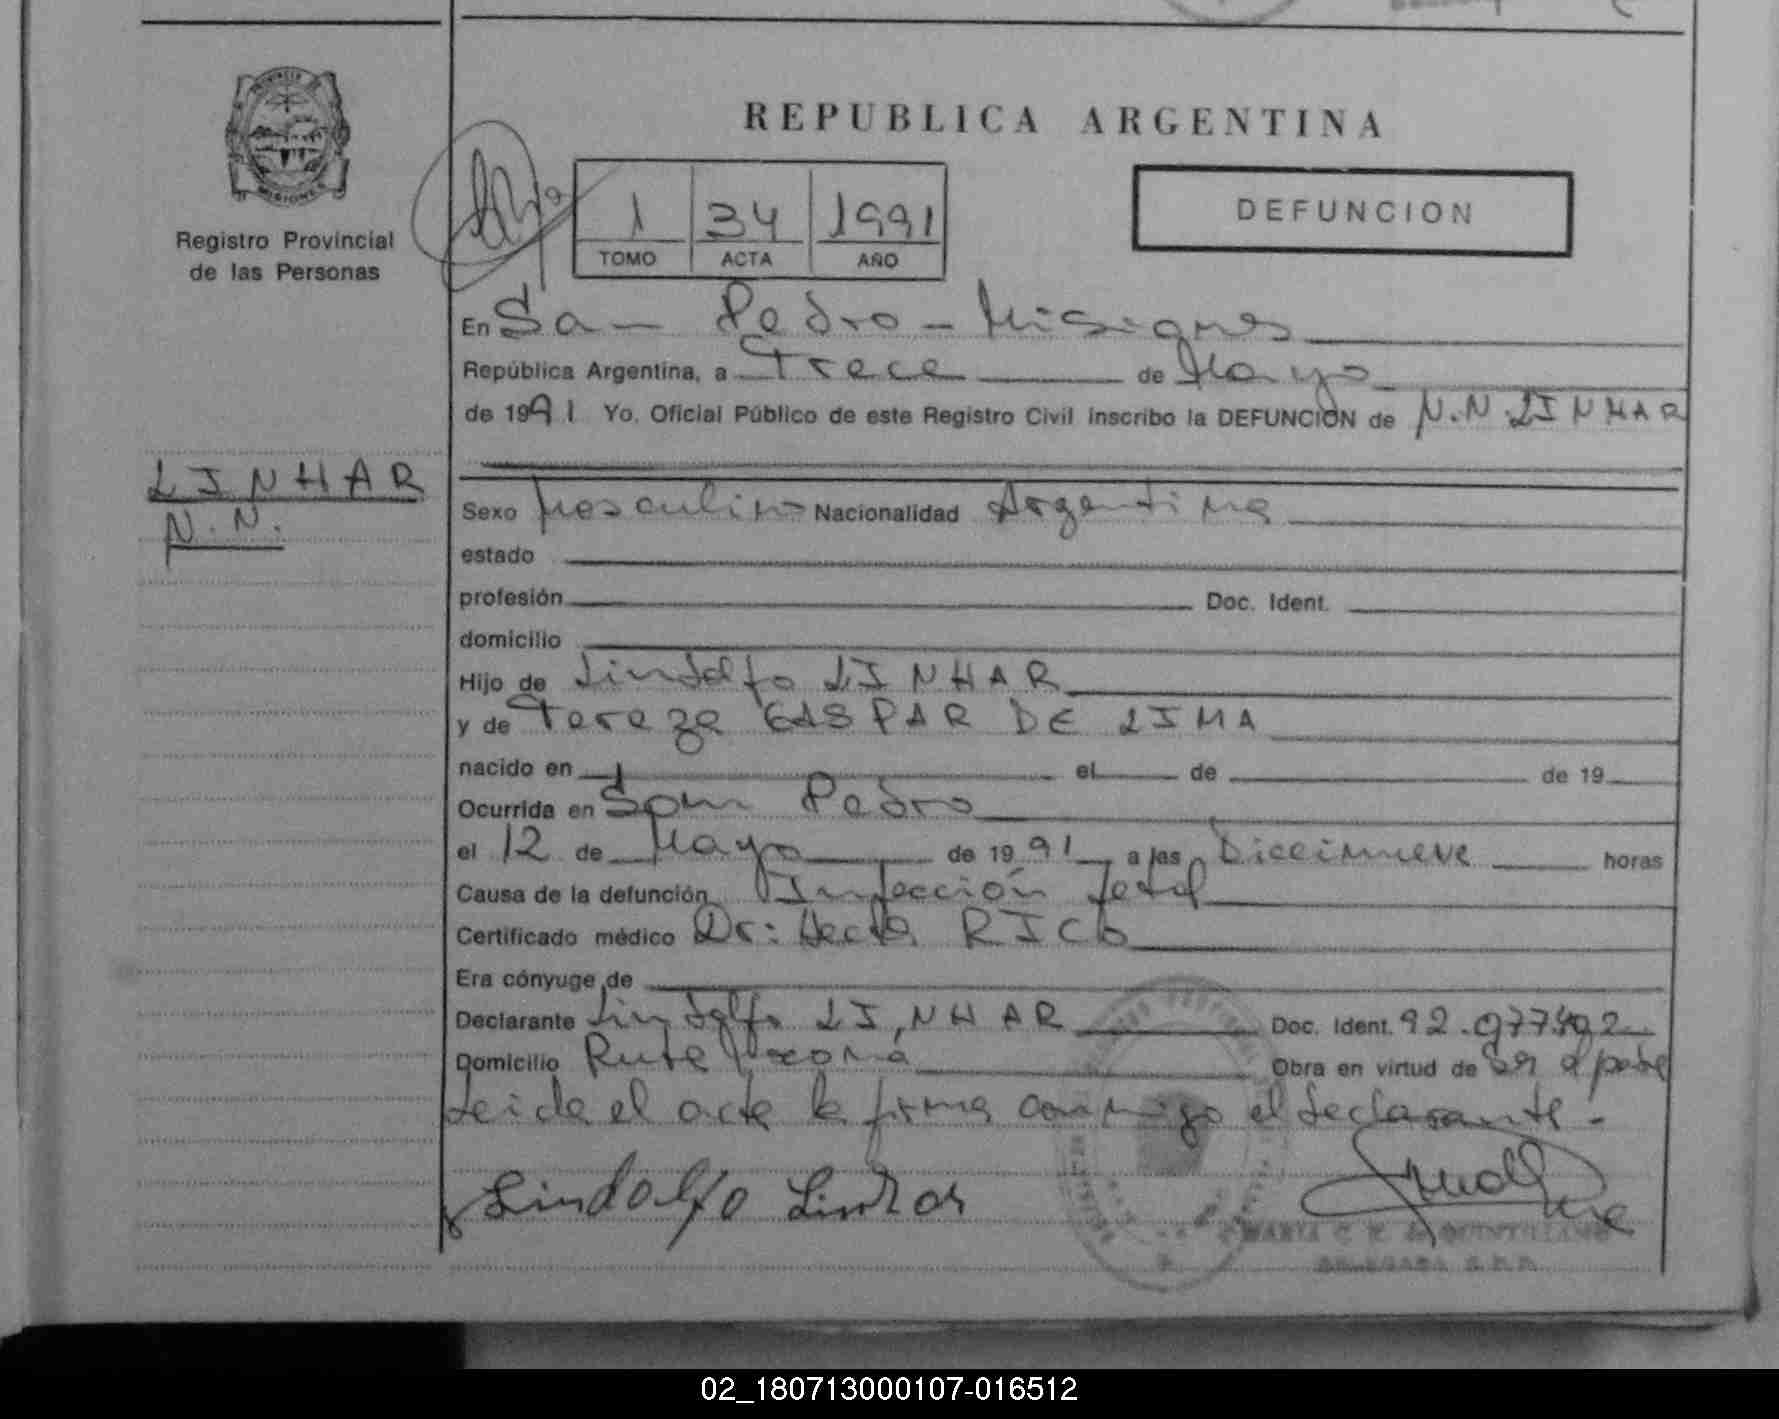 REPUBLICA ARGENTINA
PROVINCIA DE
MISIONES
Registro Provincial
de las Personas
1 34 1991
TOMO ACTA AÑO
DEFUNCION
En San Pedro - Misiones
República Argentina, a Trece de Mayo
de 1991 Yo, Oficial Público de este Registro Civil inscribo la DEFUNCION de N.N. LINHAR
LINHAR
N.N.
Sexo Masculino Nacionalidad Argentina
estado
profesión Doc. Ident.
domicilio
Hijo de Lindolfo LINHAR
y de Tereza GASPAR DE LIMA
nacido en el de de 19
Ocurrida en San Pedro
el 12 de Mayo de 1991 a las Diecinueve horas
Causa de la defunción Infección fetal
Certificado médico Dr: Hector RICO
Era cónyuge de
Declarante Lindolfo LINHAR Doc. Ident. 92.977.402
Domicilio Ruta Obra en virtud de ser el padre
Leida el acta la firma conmigo el declarante.-
Lindolfo Linhar
MARIA C. K. de QUINTILIANO
02_180713000107-016512